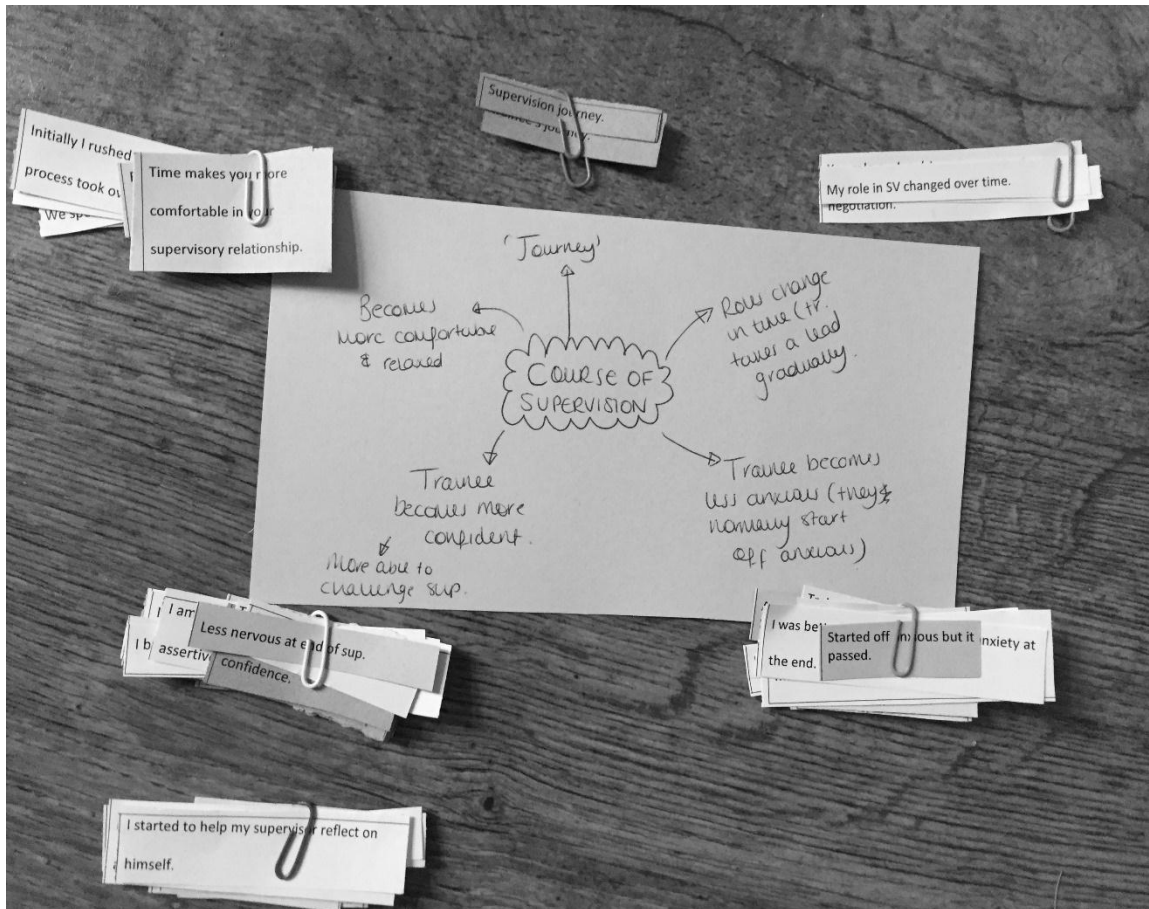 Supervision journey.
journey.
Initially I rushed
process took ov
We spe
Time makes you more
comfortable in your
supervisory relationship.
My role in SV changed over time.
negotiation.
'Journey'
Becomes
more comfortable
& relaxed
Roles change
in time (tr.
takes a lead
gradually.
COURSE OF
SUPERVISION
Trainee
becomes more
confident.
More able to
challenge sup.
Trainee becomes
less anxious (they
normally start
off anxious)
I am
I b
assertiv
Less nervous at end of sup.
confidence.
I was be
the end.
Started off anxious but it
passed.
nxiety at
I started to help my supervisor reflect on
himself.